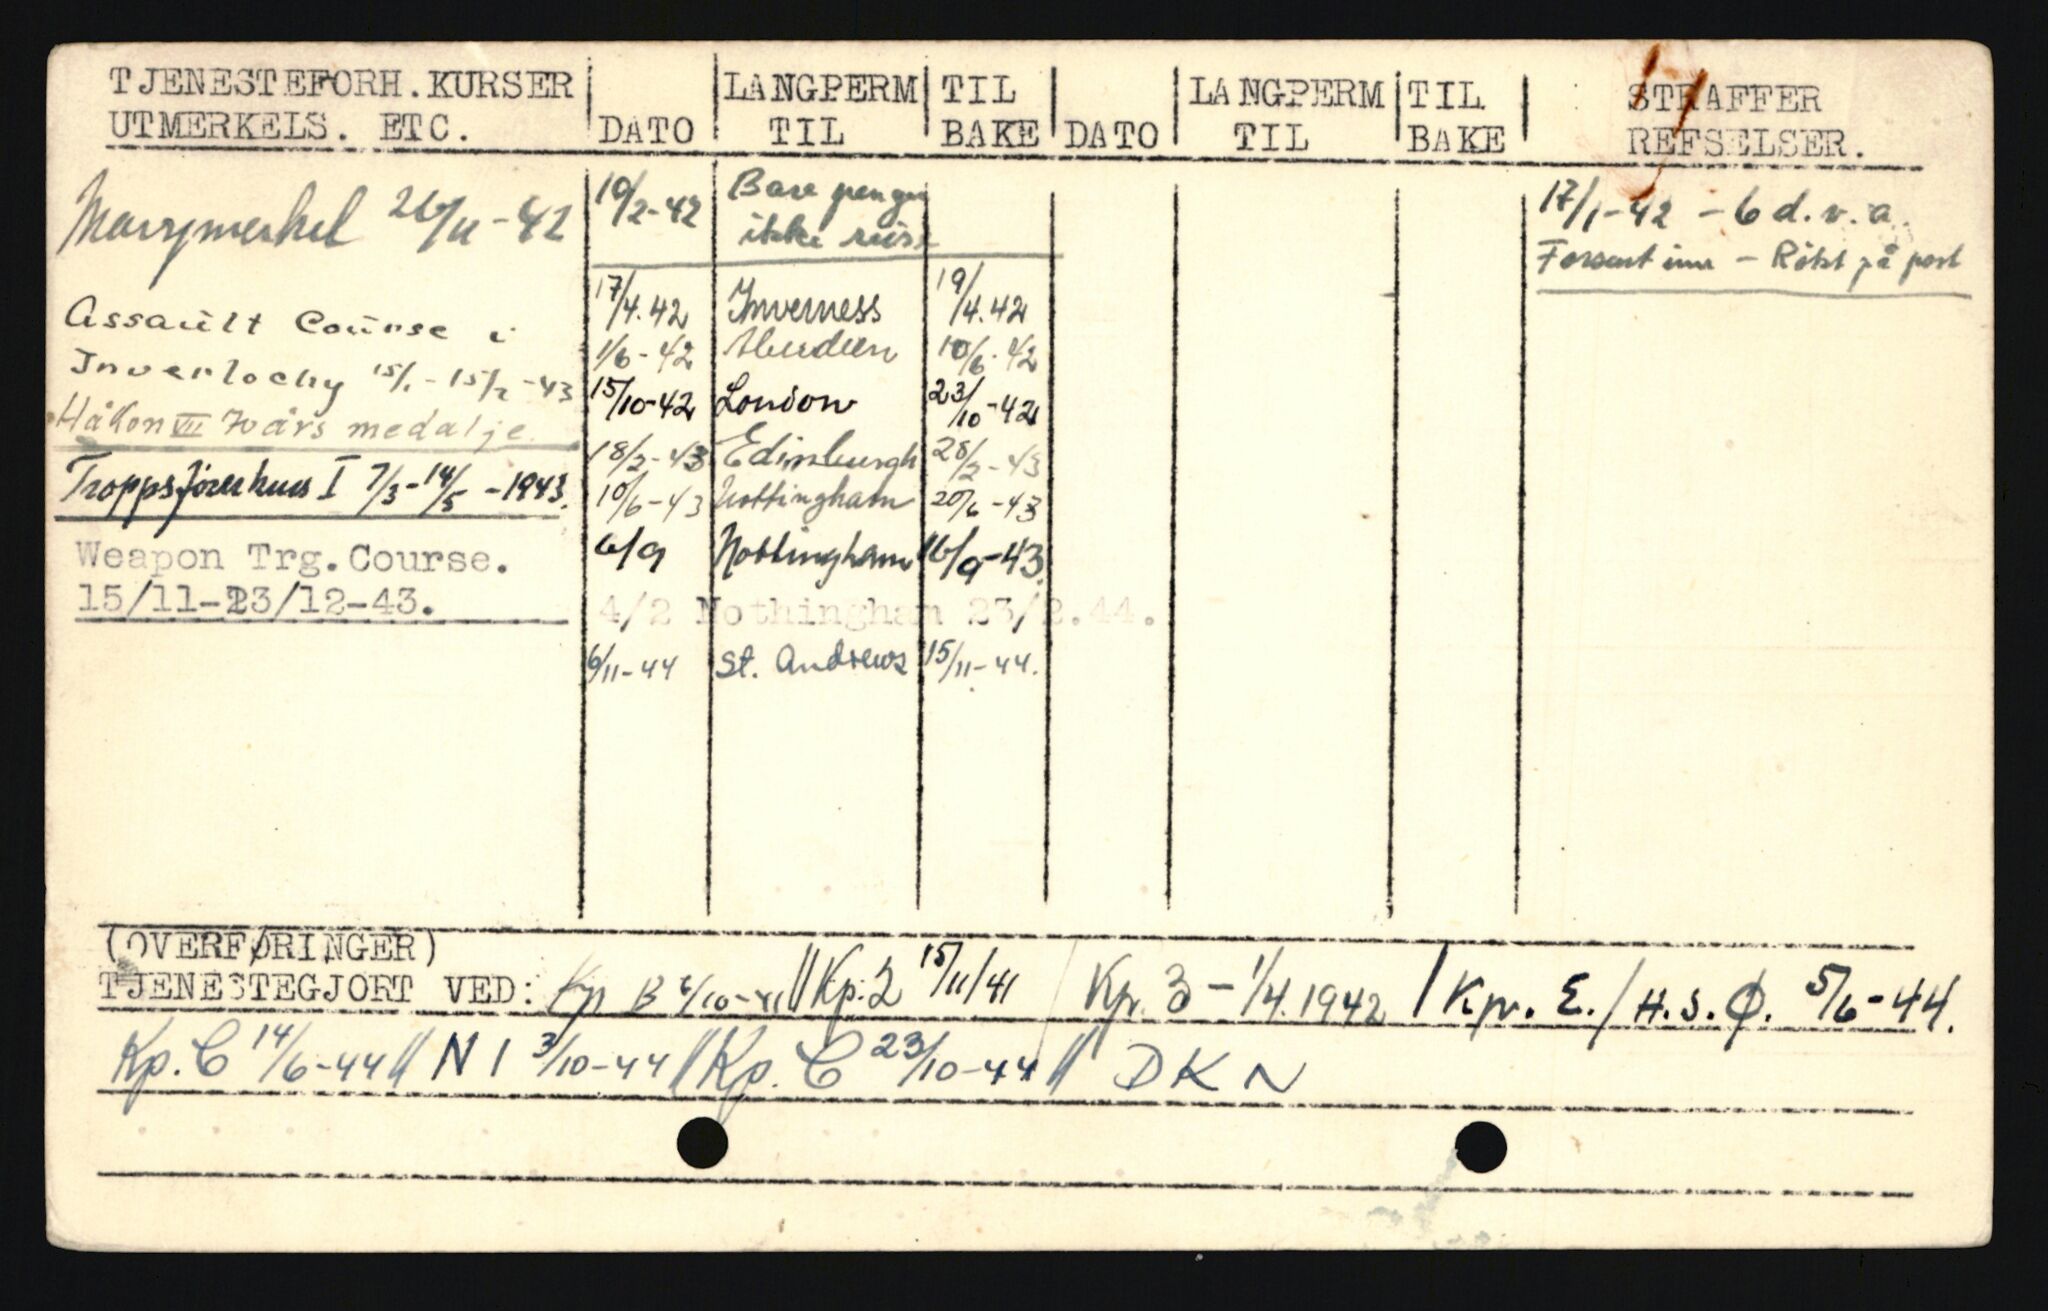 TJENESTEFORH. KURSER
UTMERKELS. ETC.
DATO
LANGPERM
TIL
TIL
BAKE
DATO
LANGPERM
TIL
TIL
BAKE
STRAFFER
REFSELSER.
26/11-42
Assault Course i
Inverlochy 15/1-15/2-43
Håkon VII 70 års medalje
Troppsførerkurs I 7/3-14/5-1943.
Weapon Trg. Course.
15/11-23/12-43.
10/2-42 Bare penger
ikke reise
17/4.42 Inverness 19/4.42
1/6-42 Aberdeen 10/6-42
15/10-42 London 23/10-42
18/2-43 Edinburgh 28/2-43
10/6-43 Nottingham 20/6-43
6/9 Nottingham 16/9-43
4/2 Nothingham 23/2.44.
6/11-44 St. Andrews 15/11-44.
17/1-42 - 6 d.v.a.
Forsent inn - Røkt på post
(OVERFØRINGER)
TJENESTEGJORT VED: Kp B 6/10-41 // Kp. 2 15/11/41 / Kp. 3 - 1/4.1942 / Kp. E. / H.S.Ø. 5/6-44.
Kp. C 14/6-44 // N 1 3/10-44 // Kp. C 23/10-44 // DKN